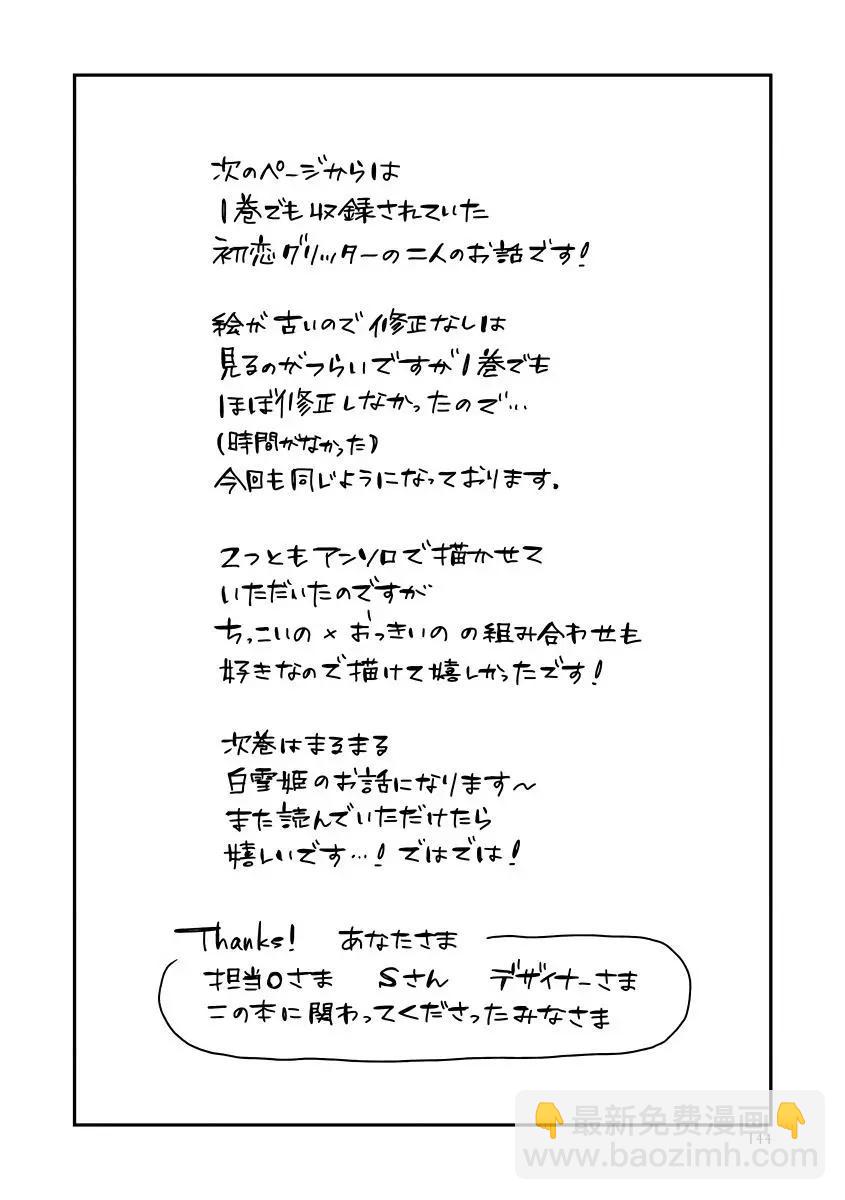 次のページからは
1巻でも収録されていた
初恋グリッターの二人のお話です!
絵が古いので修正なしは
見るのがつらいですが1巻でも
ほぼ修正しなかったので…
(時間がなかった)
今回も同じようになっております。
2つともアンソロで描かせて
いただいたのですが
ちっこいの×おっきいのの組み合わせも
好きなので描けて嬉しかったです!
次巻はまるまる
白雪姫のお話になります〜
また読んでいただけたら
嬉しいです…!ではでは!
Thanks! あなたさま
担当Oさま Sさん デザイナーさま
この本に関わってくださったみなさま
最新免费漫画
144
www.baozimh.com